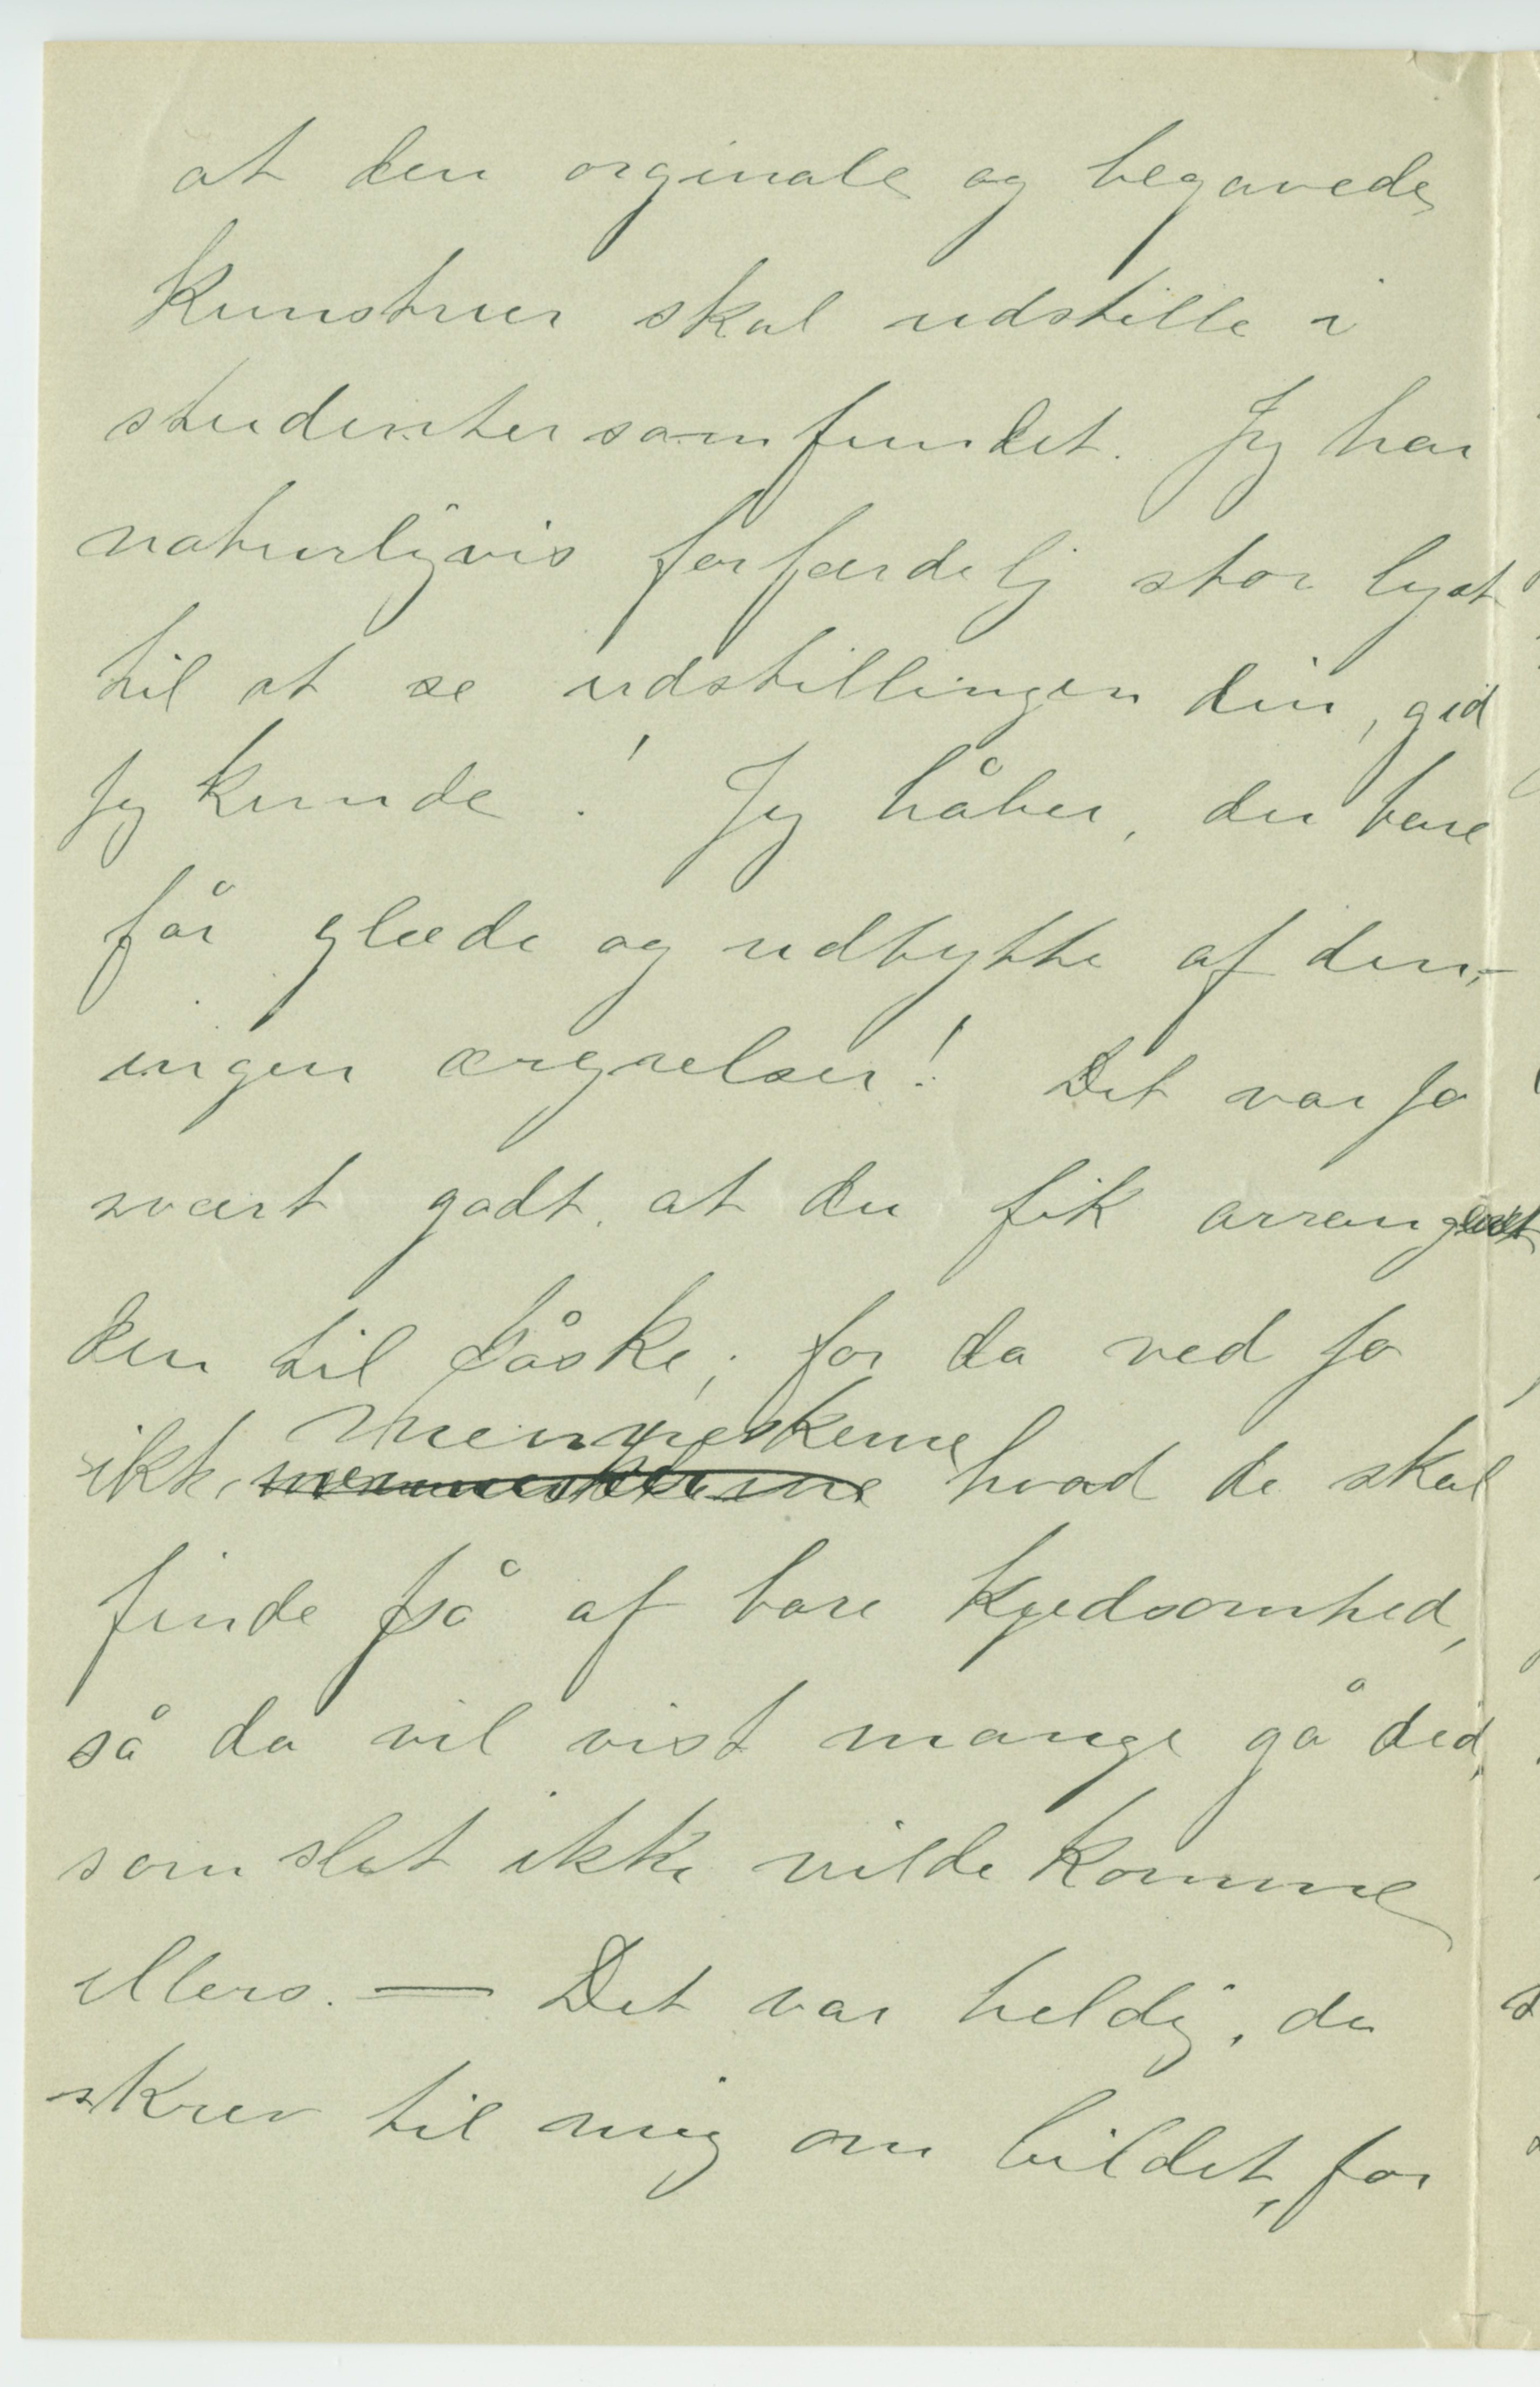 at den orginale og begavede
kunstner skal udstille i
studentersamfundet. Jeg har
naturligvis forfærdelig stor lyst
til at se udstillingen din, gid
jeg kunde! Jeg håber, du bare
får glæde og udbytte af den,-
ingen ærgrelser! Det var jo
svært godt, at du fik arrangeret
den til påske; for da ved jo
menneskene
ikke menneskene hvad de skal
finde på af bare kjedsomhed,
så da vil vist mange gå did,
som slet ikke vilde komme
ellers. — Det var heldig, du
skrev til mig om bildet, for